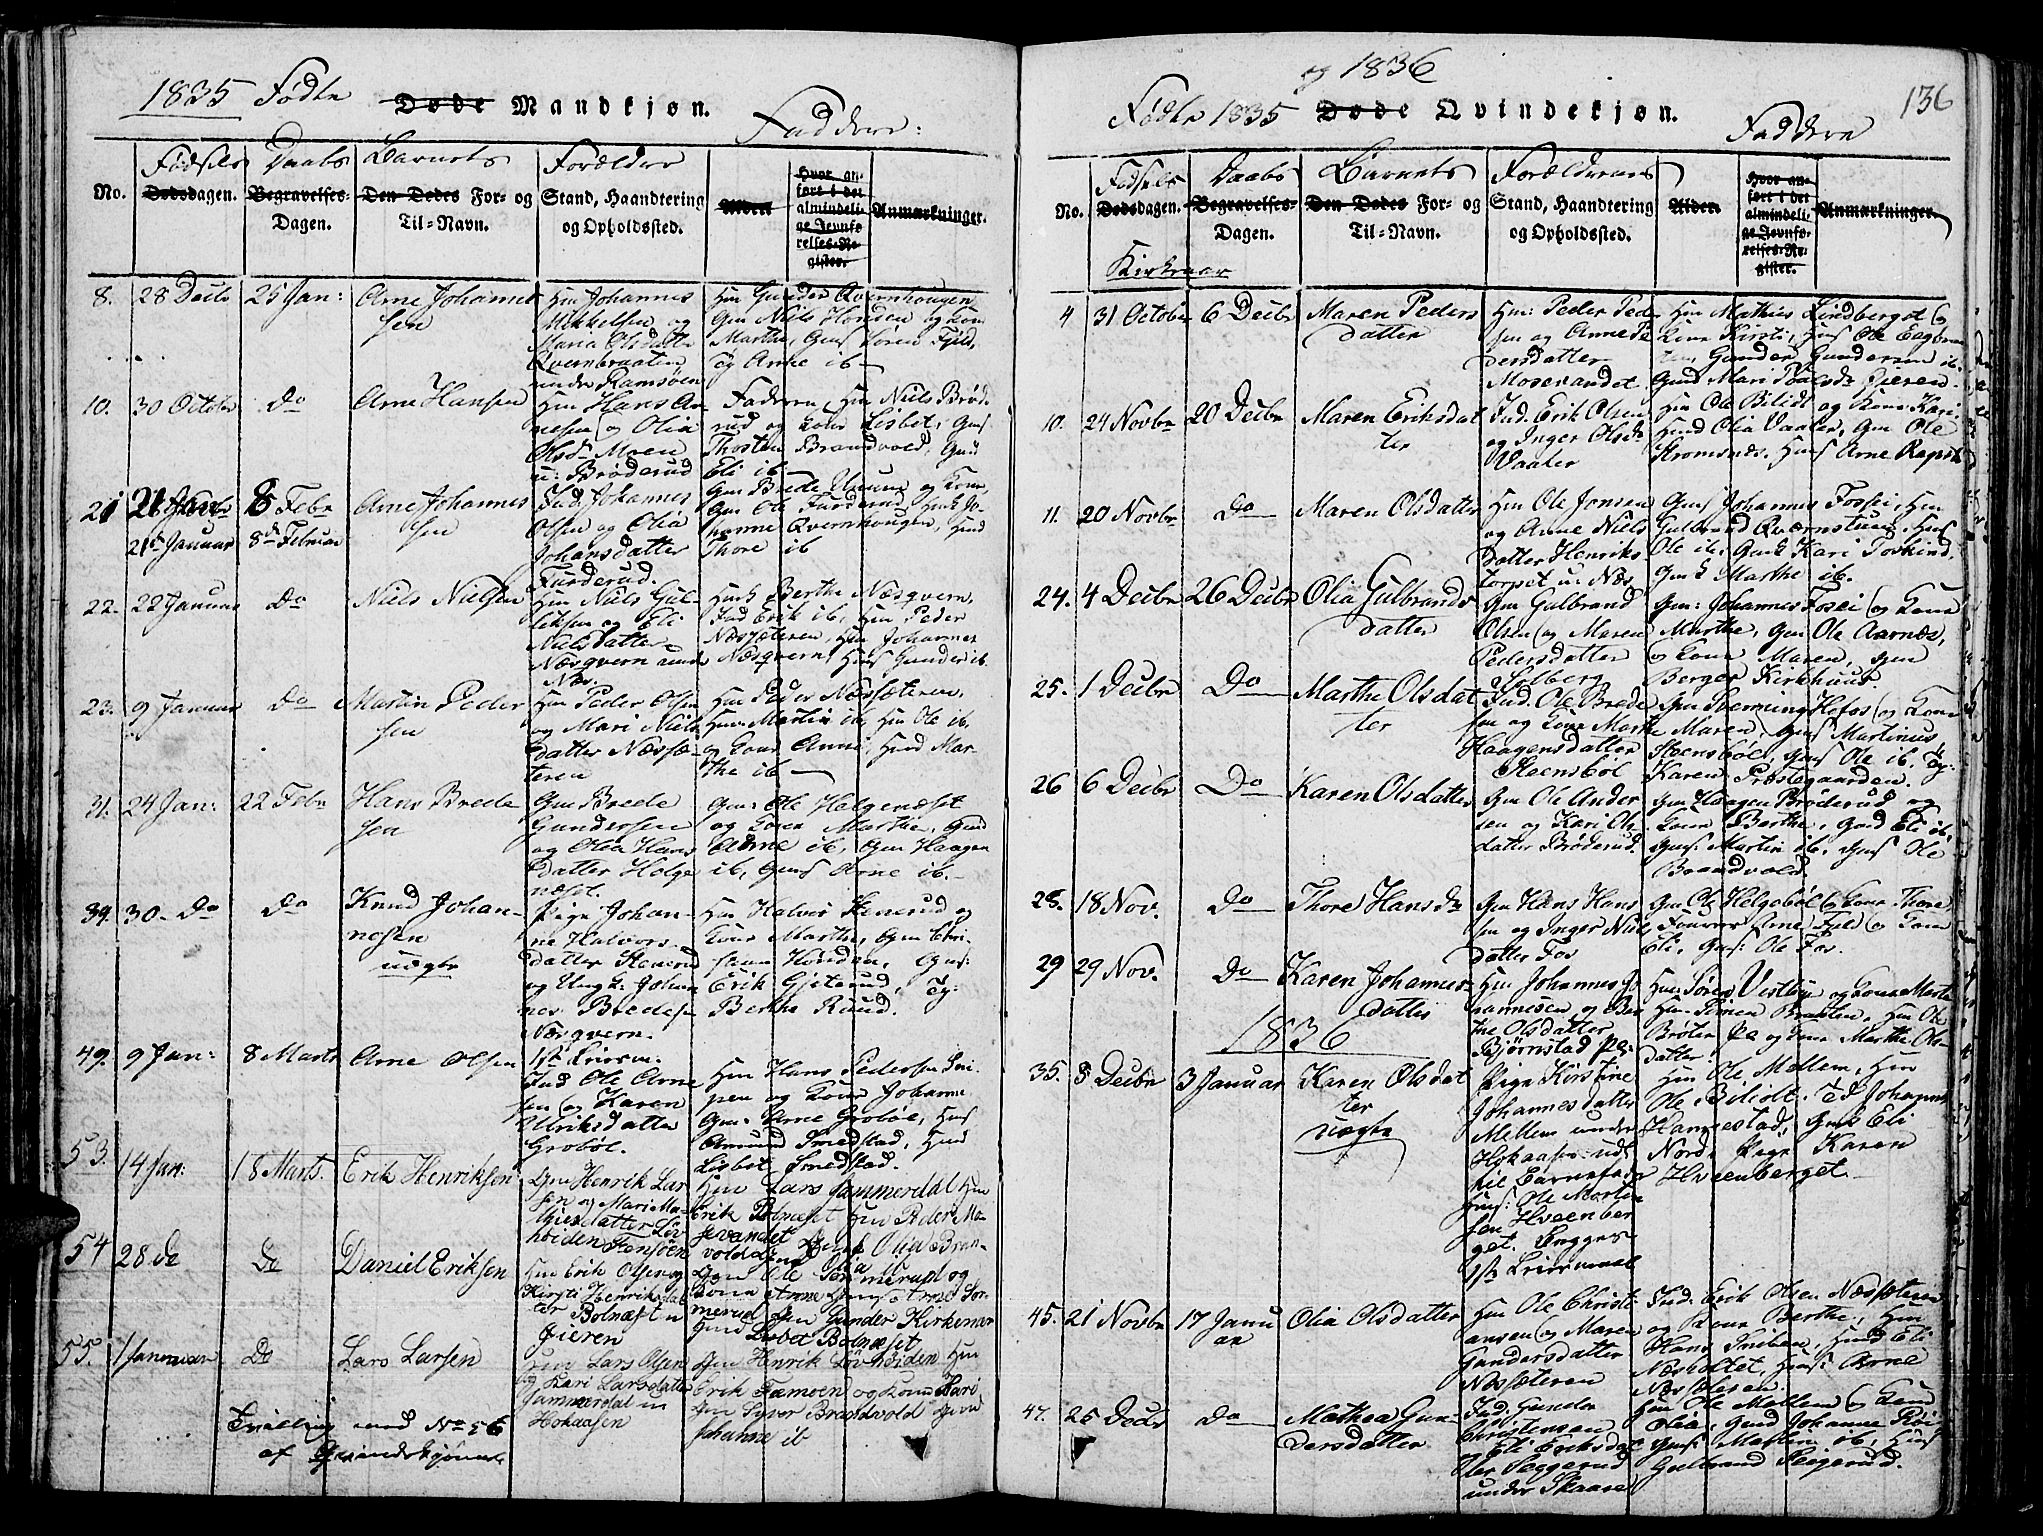 1835 Fødte Døde Mandkjøn. Faddere:
No.
Fødsels Dødsdagen.
Daabs Begravelses-Dagen.
Barnets Den Dødes For- og Til-Navn.
Forældre Stand, Haandtering og Opholdssted.
Alder.
Hvor anført i det almindelige Jevnførelses-Register.
Anmærkninger.
8. 28 Decbr 25 Jan: Arne Johannes
sen
Hm Johannes
Mikkelsen og
Maria Olsdatter
Qvernbraaten
under Ramsøen
Hm Gunder Qvernhougen
Gm Niels Honden og Kone
Marthe, Gms Søren Fjeld,
Tj Anne ib
10. 30 October do Arne Hansen
Hm Hans Ar-
nesen og Olia
Olsd Moen
u: Brøderud
Faderen, Hm Niels Brøde
rud og Kone Lisbet, Gms
Thosten Brandvold, Gmd
Eli ib
21 21 Januar 8 Febr Arne Johannes
21de Januar 8de Februar sen
Ind Johannes
Olsen og Olia
Johansdatter
Furderud.
Gm Brede og Kone,
Gm Ole Furderud, Jo-
hanne Qvernhougen, Hmd
Thore ib
22. 22 Januar do Niels Nielsen
Hm Niels Gul-
liksen og Eli
Nielsdatter
Næsqvern under
Næs.
Hmk Berthe Næsqvern,
Ind Erik ib, Hm Peder
Næssæteren, Hm Johannes
Næsqvern, Hms Gunder ib
23. 9 Januar do Martin Peder
sen
Hm Peder Olsen
og Mari Niels
datter Næssæ-
teren
Hm Peder Næssæteren,
Hms Martin ib, Hm Ole ib,
og Kone Anne, Hmd Mar-
the ib
31. 24 Jan: 22 Febr Hans Brede
sen
Gm Brede
Gundersen
og Olia Hans
datter Holge
næset.
Gm: Ole Holgenæset
og Kone Marthe, Gmd
Anne ib, Gm Haagen
ib, Gms Arne ib.
39. 30. do do Knud Johan-
nesen
uægte
Pige Johan-
ne Halvors-
datter Stenerud
og Ungk: Johan
nes Bredes
Næsqvern.
1ste Leierm:
Hm Halvor Stenerud og
Kone Marthe, Gm Chri-
stian Honden, Gms:
Erik Gjeterud, Tj:
Berthe Ruud.
49. 9 Jan: 8 Marts Arne Olsen
Ind Ole Arne
sen og Karen
Ulriksdatter
Grobøl.
Hm Hans Pedersen Sni-
pen og Kone Johanne
Gm: Arne Grobøl, Hms
Amund Smedstad, Hmd
Lisbet Smedstad.
53. 14 Jan: 18 Marts. Erik Henriksen
Gm Henrik Lar
sen og Mari Ma-
thiesdatter Løv
høiden
Hm Lars Jammerdal Hm
Erik Bolnæset Hm Peder Mo-
sevandet Olia Bran-
vold
54 28 do Do Daniel Eriksen
Hm Erik Olsen og
Kirsti Henriksdat
ter Bolnæset u
Øieren
Gm Ole og
Kone Anne Gms Arne
Gm Gunder Kirkenær
Hmd Lisbet Bolnæset
55. 1 Januar Do Lars Larsen
Hm Lars Olsen
og Kari Larsdatter
Jammerdal u
Hokaasen
Gm Henrik Løvhøiden Hm
Erik og Kone Kari
Gm Syver Brandvold Gmd
Johanne ib
Tvilling med No 56
af Qvindekjønnet
Fødte 1835 og 1836 Døde Qvindekjøn. Faddere 136
No.
Fødsels Dødsdagen.
Daabs Begravelses-Dagen.
Barnets Den Dødes For- og Til-Navn.
Forældrenes Stand, Haandtering og Opholdssted.
Alder.
Hvor anført i det almindelige Jevnførelses-Register.
Anmærkninger.
Kirkenær
4 31 October 6 Decbr Maren Peders
datter
Hm: Peder Ped
sen og Anne Pe
dersdatter
Mosevandet
Hm Mathies Lindberget og
Kone Kirsti, Hms Ole
Gunder Gundersen ib.
Gmd Mari Poulsdr Øieren
10. 24 Novbr 20 Decbr Maren Eriksdat
ter
Ind. Erik Olsen
og Inger Olsdr
Vaaler
Hm Ole Bilidt og Kone Kari
Hmd Olia Vaaler, Gm Ole
Stromsnæs, Hms Arne
11. 20 Novbr Do Maren Olsdatter
Hm Ole Jonsen
og Anne Niels
datter Henriks
torpet u: Næs
Gms Johannes Fossei, Hm
Gulbrand Qværnstuen, Hms
Ole ib, Gmk Kari
Gmk Marthe ib.
24. 4 Decbr 26 Decbr Olia Gulbrands
datter
Gm Gulbrand
Olsen og Maren
Pedersdatter
Solberg
Gm: Johannes Fossei og Kone
Marthe, Gm Ole Aarnæs,
og Kone Maren, Gm
Berger Kirkhuus.
25. 1 Decbr Do Marthe Olsdat
ter
Ind. Ole Brede
sen og Kone Marthe
Haagensdatter
Steensbøl
Gm Flerming Hofos og Kone
Maren, Gms Martinus
Steensbøl, Gms Ole ib, Tj:
Karen Præstegaarden.
26 6 Decbr Do Karen Olsdatter
Gm Ole Ander
sen og Kari Ols
datter Brøderud.
Gm Haagen Brøderud og
Kone Berthe, Gmd Eli ib,
Gms Martin ib, Gms Ole
Brandvold.
28. 18 Nov. Do Thore Hansdr
Gm Hans Hans
sen og Inger Niels
datter Fos
Gm Ole Helgebøl og Kone Thore
Arne Fjeld og Kone
Eli, Gms: Ole Fos.
29 29 Nov. Do Karen Johannes
datter
Hm Johannes Jo
hannesen og Ber
the Olsdatter
Bjørnstad pa:
Hm Søren og Kone Marte
Hm Simen Braaten, Hm Ole
Broten pa og Kone Marthe Ols-
datter.
1836
35. 8 Decbr 3 Januar Karen Olsdat
ter
uægte
Pige Kirstine
Johannesdatter
Mellem under
Hokaasen: ud
til Barnefader
Hms: Ole Morten
sen Hveenber
get. Begges
1ste Leiermaal
Hm Ole Mellem, Hm
Ole Bilidt. Tj Johannes
Kannestad, Gmk Eli
Nord. Pige Karen
Hveenberget.
45. 21 Novbr 17 Janu
ar
Olia Olsdatter
Hm Ole Christi
ansen og Maren
Gundersdatter
Næssæteren
Ind. Erik Olsen Næssæteren
og Kone Berthe, Hm
Hans Sniben, Hmd Eli
Næsboltet, Hms: Arne
Næssæteren.
47. 25 Decbr do Mathea Gun-
dersdatter
Ind. Gunder
Christensen
og Eli Eriksdat
ter
under Skaare
Hm Ole Mellem og Kone
Olia, Gmd Johanne
Gms: Martin ib, Hms
Gulbrand